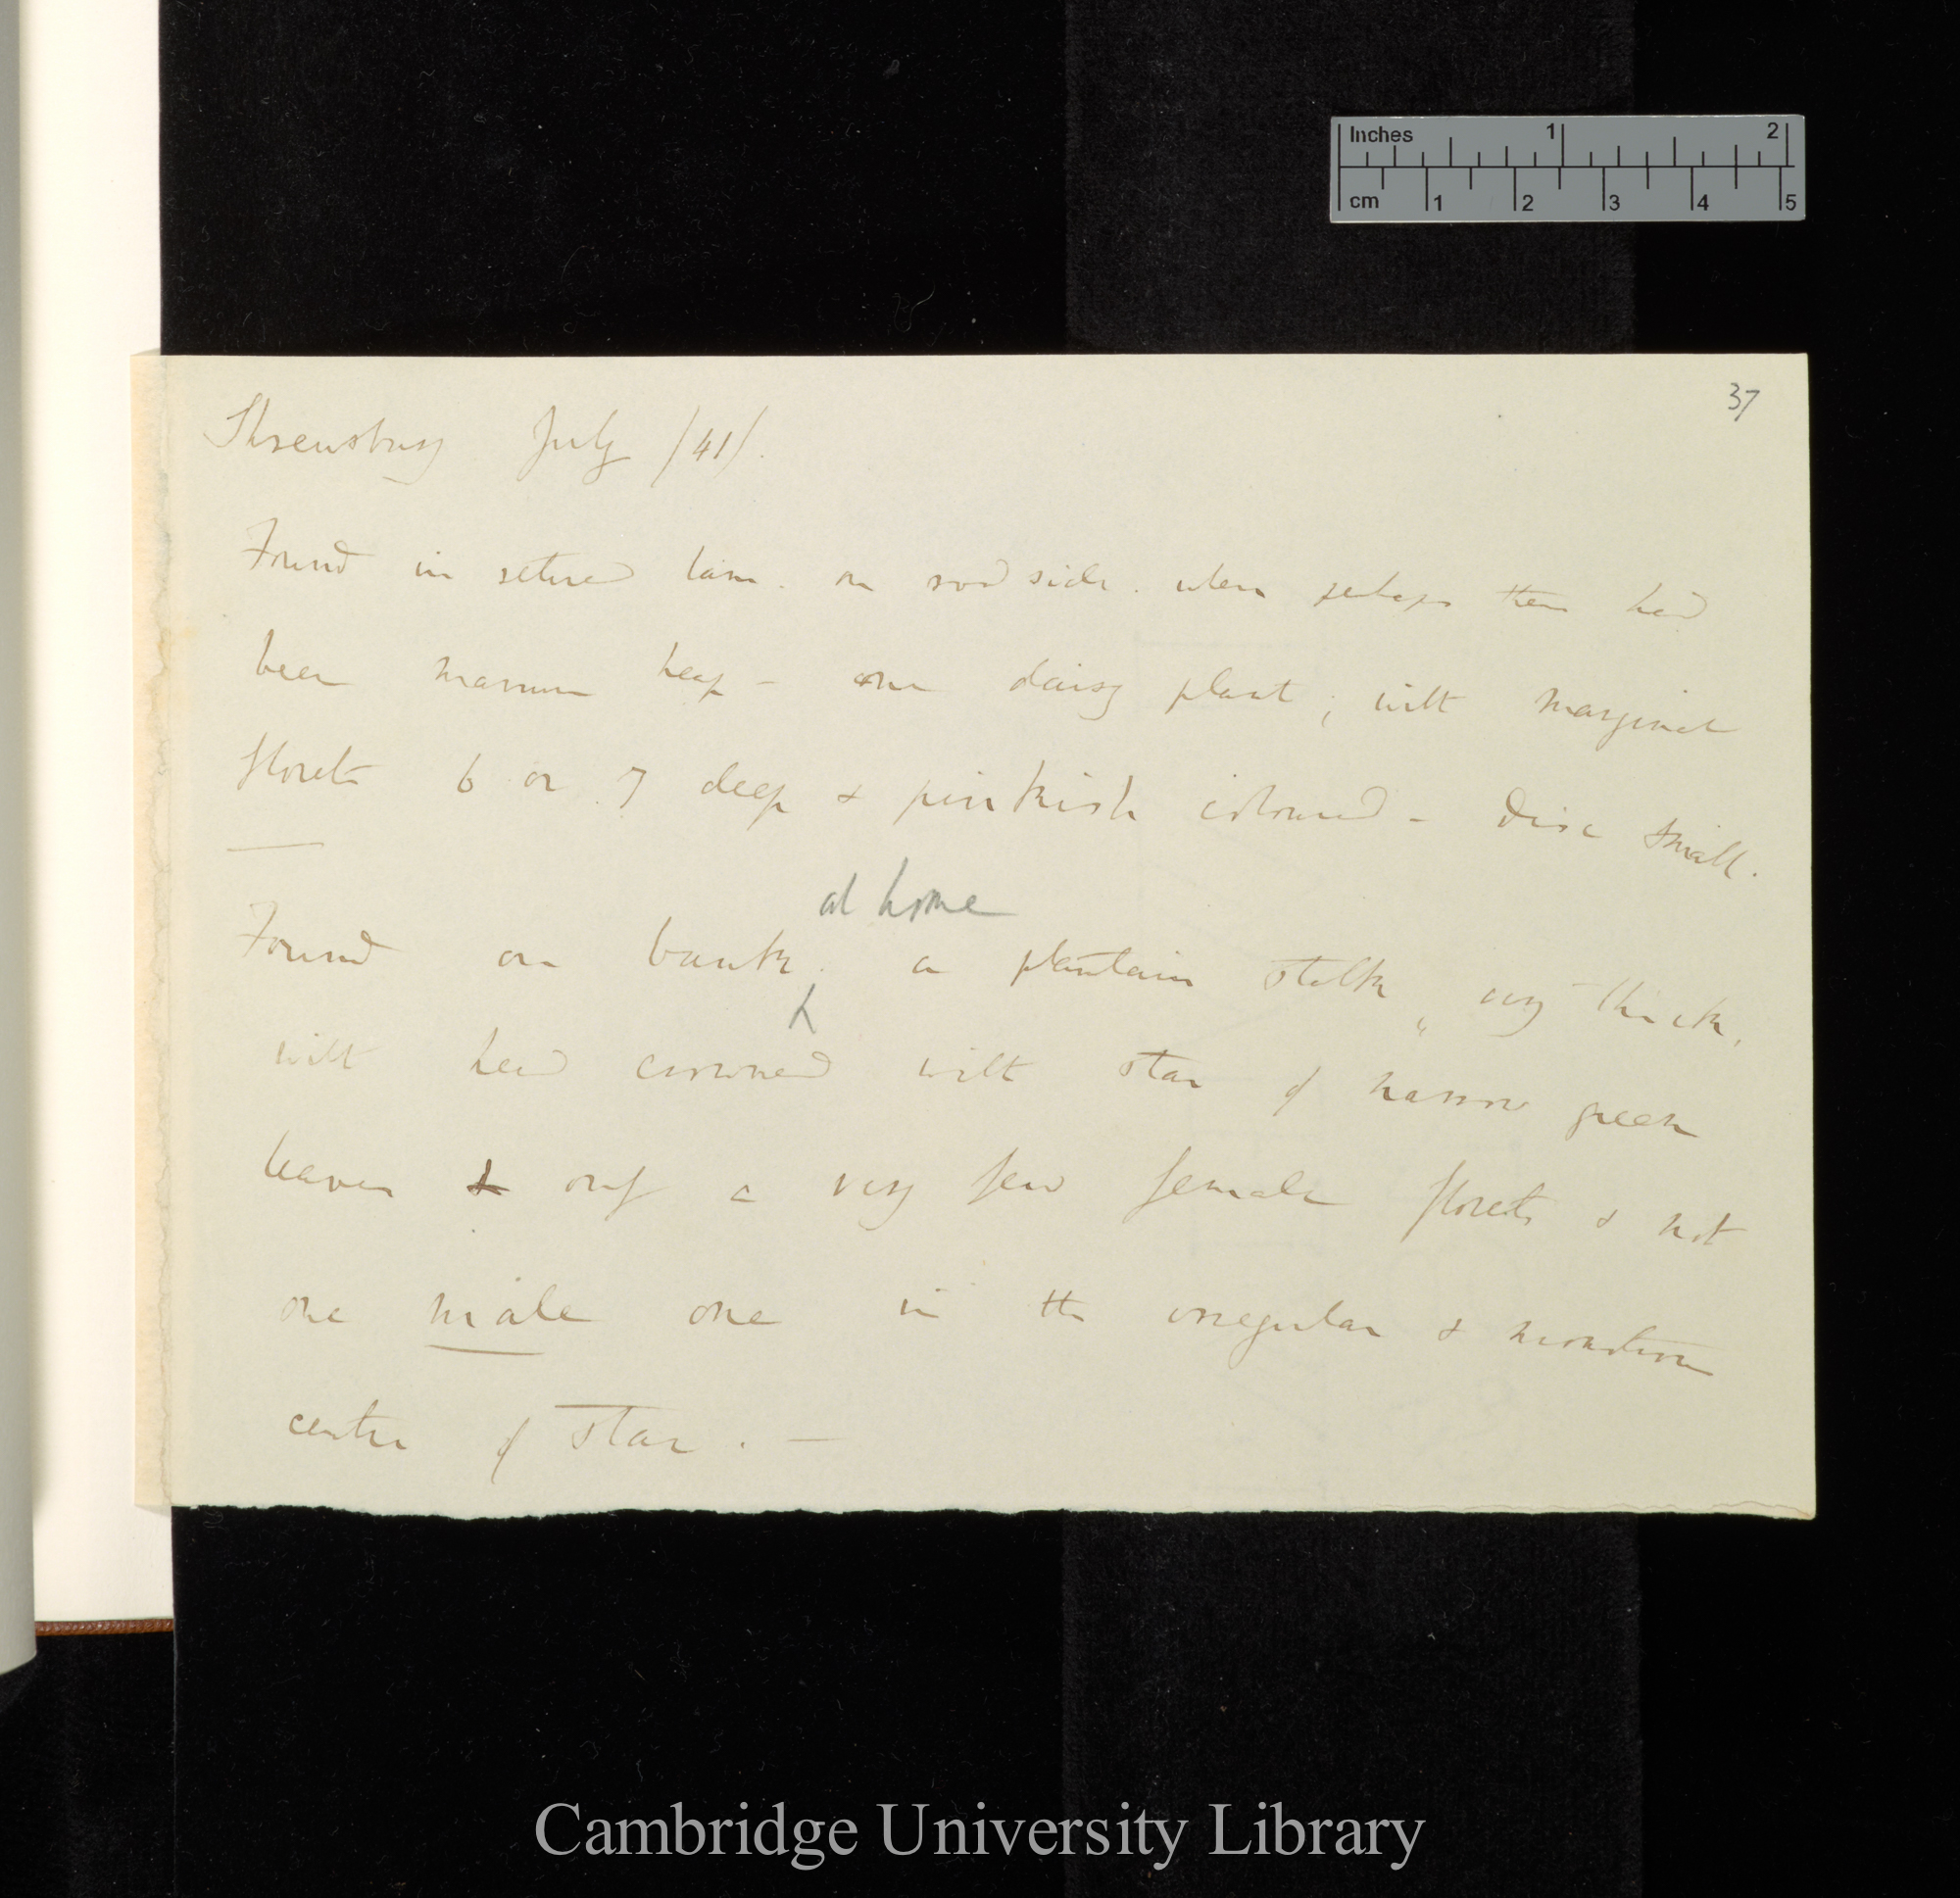 Inches 1 2
cm 1 2 3 4 5
37
Shrewsbury July /41/.
Found in retired lane. on road side. where perhaps there had
been manure heap — one daisy plant, with marginal
florets 6 or 7 deep & pinkish coloured — Disc small.
at home
Found on bank, a plantain stalk, very thick,
with head crowned with star of narrow green
leaves & only a very few female florets & not
one male one in the irregular & monstrous
centre of star. —
Cambridge University Library